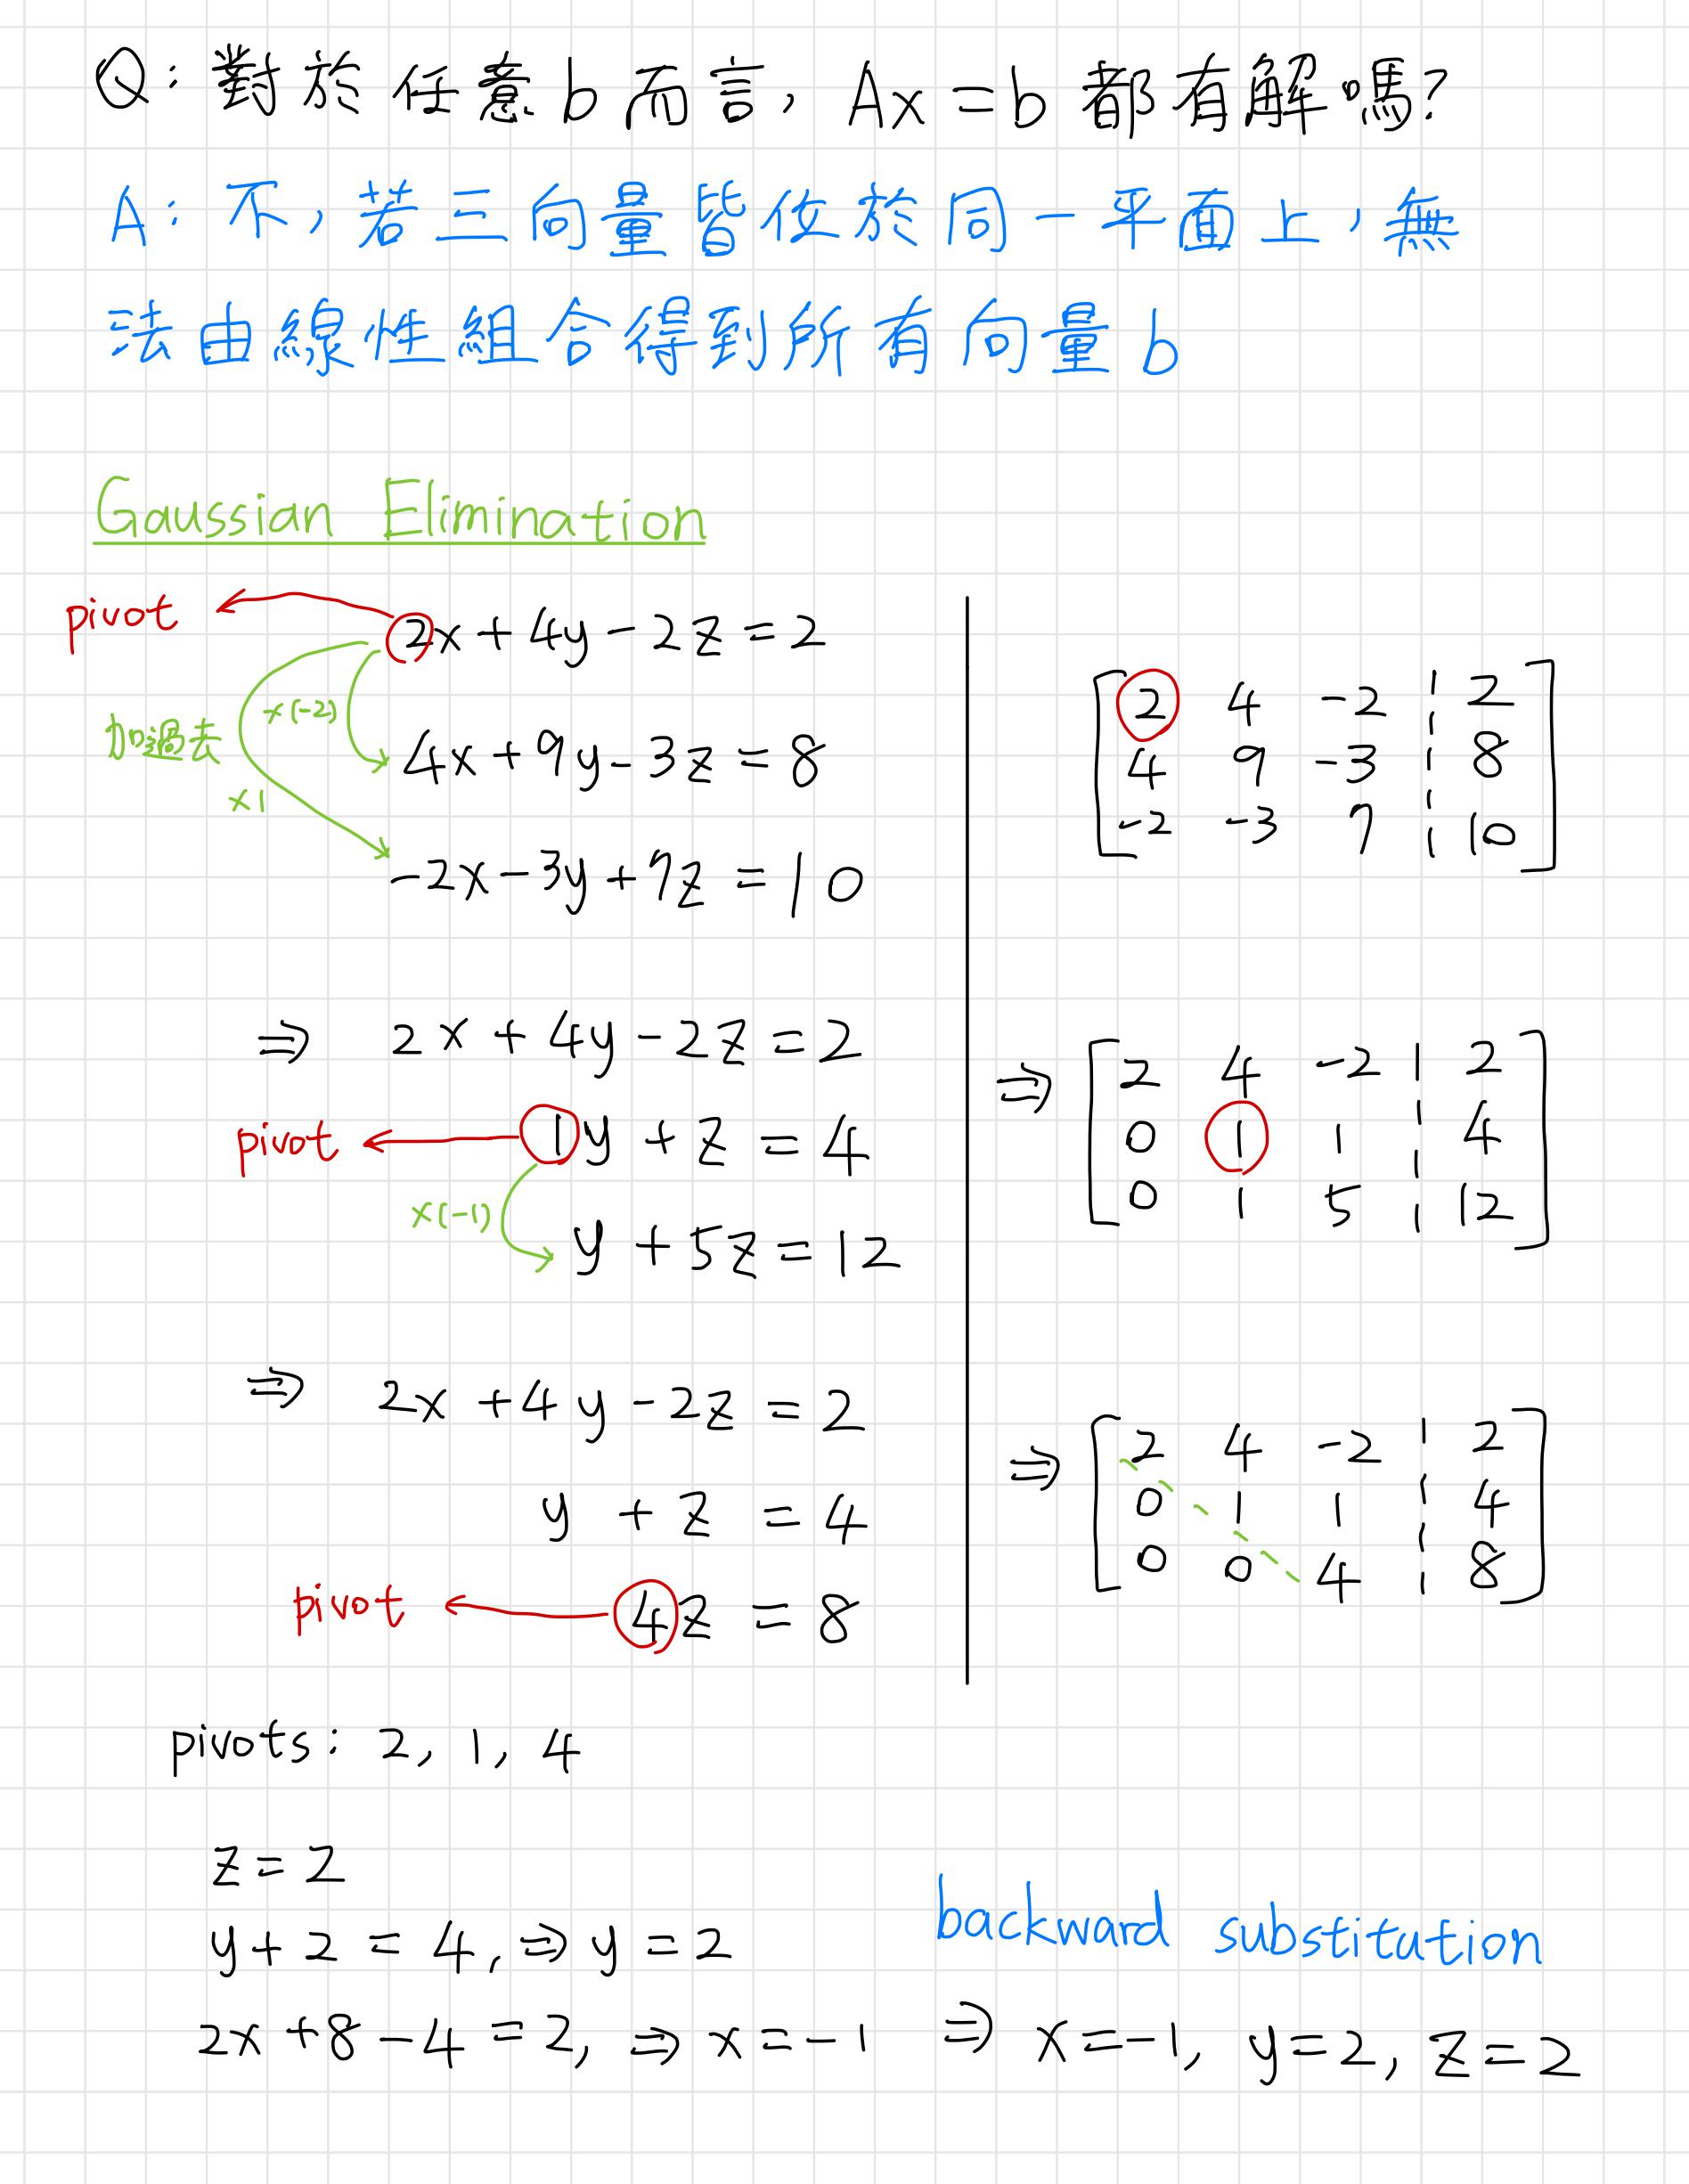 Q：對於任意b而言，Ax=b都有解嗎？
A：不，若三向量皆位於同一平面上，無
法由線性組合得到所有向量b
Gaussian Elimination
pivot
2x+4y-2z=2
加過去
x(-2)
4x+9y-3z=8
x1
-2x-3y+7z=10
2 4 -2 | 2
4 9 -3 | 8
-2 -3 7 | 10
⇒ 2x+4y-2z=2
pivot 1y+z=4
x(-1)
y+5z=12
⇒ 2 4 -2 | 2
0 1 1 | 4
0 1 5 | 12
⇒ 2x+4y-2z=2
y+z=4
pivot 4z=8
⇒ 2 4 -2 | 2
0 1 1 | 4
0 0 4 | 8
pivots: 2, 1, 4
z=2
y+2=4, ⇒ y=2
backward substitution
2x+8-4=2, ⇒ x=-1 ⇒ x=-1, y=2, z=2